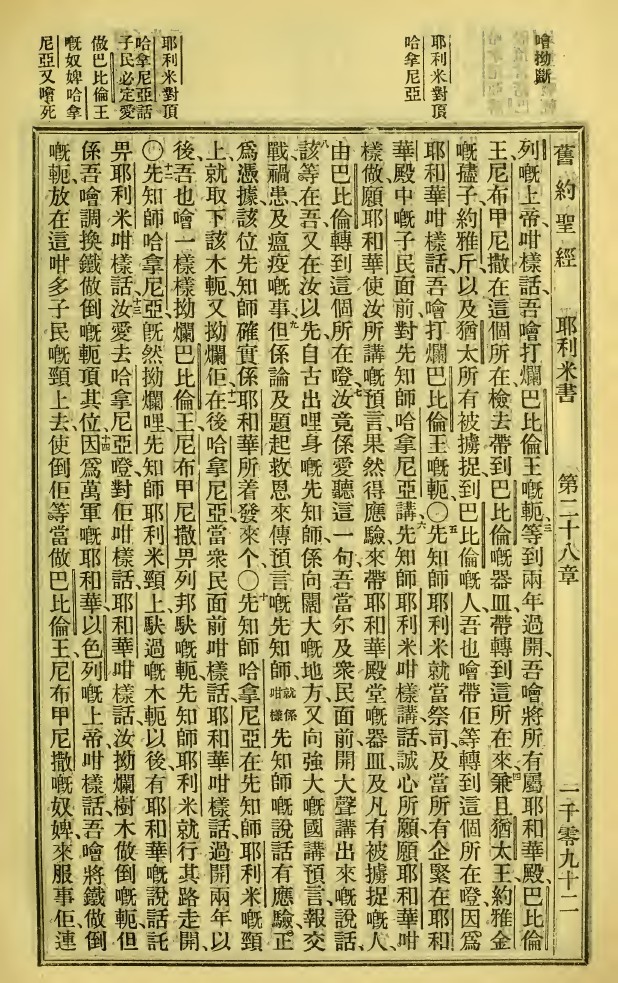 噲拗斷
耶利米對頂
哈拿尼亞
耶利米對頂
哈拿尼亞話
子民必定愛
做巴比倫王
嘅奴婢哈拿
尼亞又噲死
舊約聖經 耶利米書 第二十八章 二千零九十二
列嘅上帝咁樣話、吾噲打爛巴比倫王嘅軛、三等到兩年過開、吾噲將所有屬耶和華殿、巴比倫
王尼布甲尼撒在這個所在檢去帶到巴比倫嘅器皿、帶轉到這所在來、四兼且猶太王約雅金
嘅孻子約雅斤、以及猶太所有被擄捉到巴比倫嘅人、吾也噲帶佢等轉到這個所在噔、因爲
耶和華咁樣話、吾噲打爛巴比倫王嘅軛、〇五先知師耶利米就當祭司及當所有企緊在耶和
華殿中嘅子民面前、對先知師哈拿尼亞講、六先知師耶利米咁樣講話、誠心所願、願耶和華咁
樣做、願耶和華使汝所講嘅預言果然得應驗、來帶耶和華殿堂嘅器皿、及凡有被擄捉嘅人、
由巴比倫轉到這個所在噔、七汝竟係愛聽這一句、吾當尔及衆民面前開大聲講出來嘅說話、
八該等在吾又在汝以先、自古出哩身嘅先知師、係向闊大嘅地方、又向強大嘅國講預言、報交
戰禍患及瘟疫嘅事、九但係論及題起救恩來傳預言嘅先知師、就係咁樣先知師嘅說話有應驗、正
爲憑據該位先知師確實係耶和華所着發來个、〇十先知師哈拿尼亞在先知師耶利米嘅頸
上、就取下該木軛、又拗爛佢、十一在後哈拿尼亞當衆民面前咁樣話、耶和華咁樣話、過開兩年以
後、吾也噲一樣樣拗爛巴比倫王尼布甲尼撒畀列邦駃嘅軛、先知師耶利米就行其路走開、
〇十二先知師哈拿尼亞旣然拗爛哩先知師耶利米頸上駃過嘅木軛以後、有耶和華嘅說話託
畀耶利米咁樣話、十三汝愛去哈拿尼亞噔、對佢咁樣話、耶和華咁樣話、汝拗爛樹木做倒嘅軛、但
係吾噲調換鐵做倒嘅軛頂其位、十四因爲萬軍嘅耶和華以色列嘅上帝咁樣話、吾噲將鐵做倒
嘅軛放在這咁多子民嘅頸上去、使倒佢等當做巴比倫王尼布甲尼撒嘅奴婢來服事佢、連